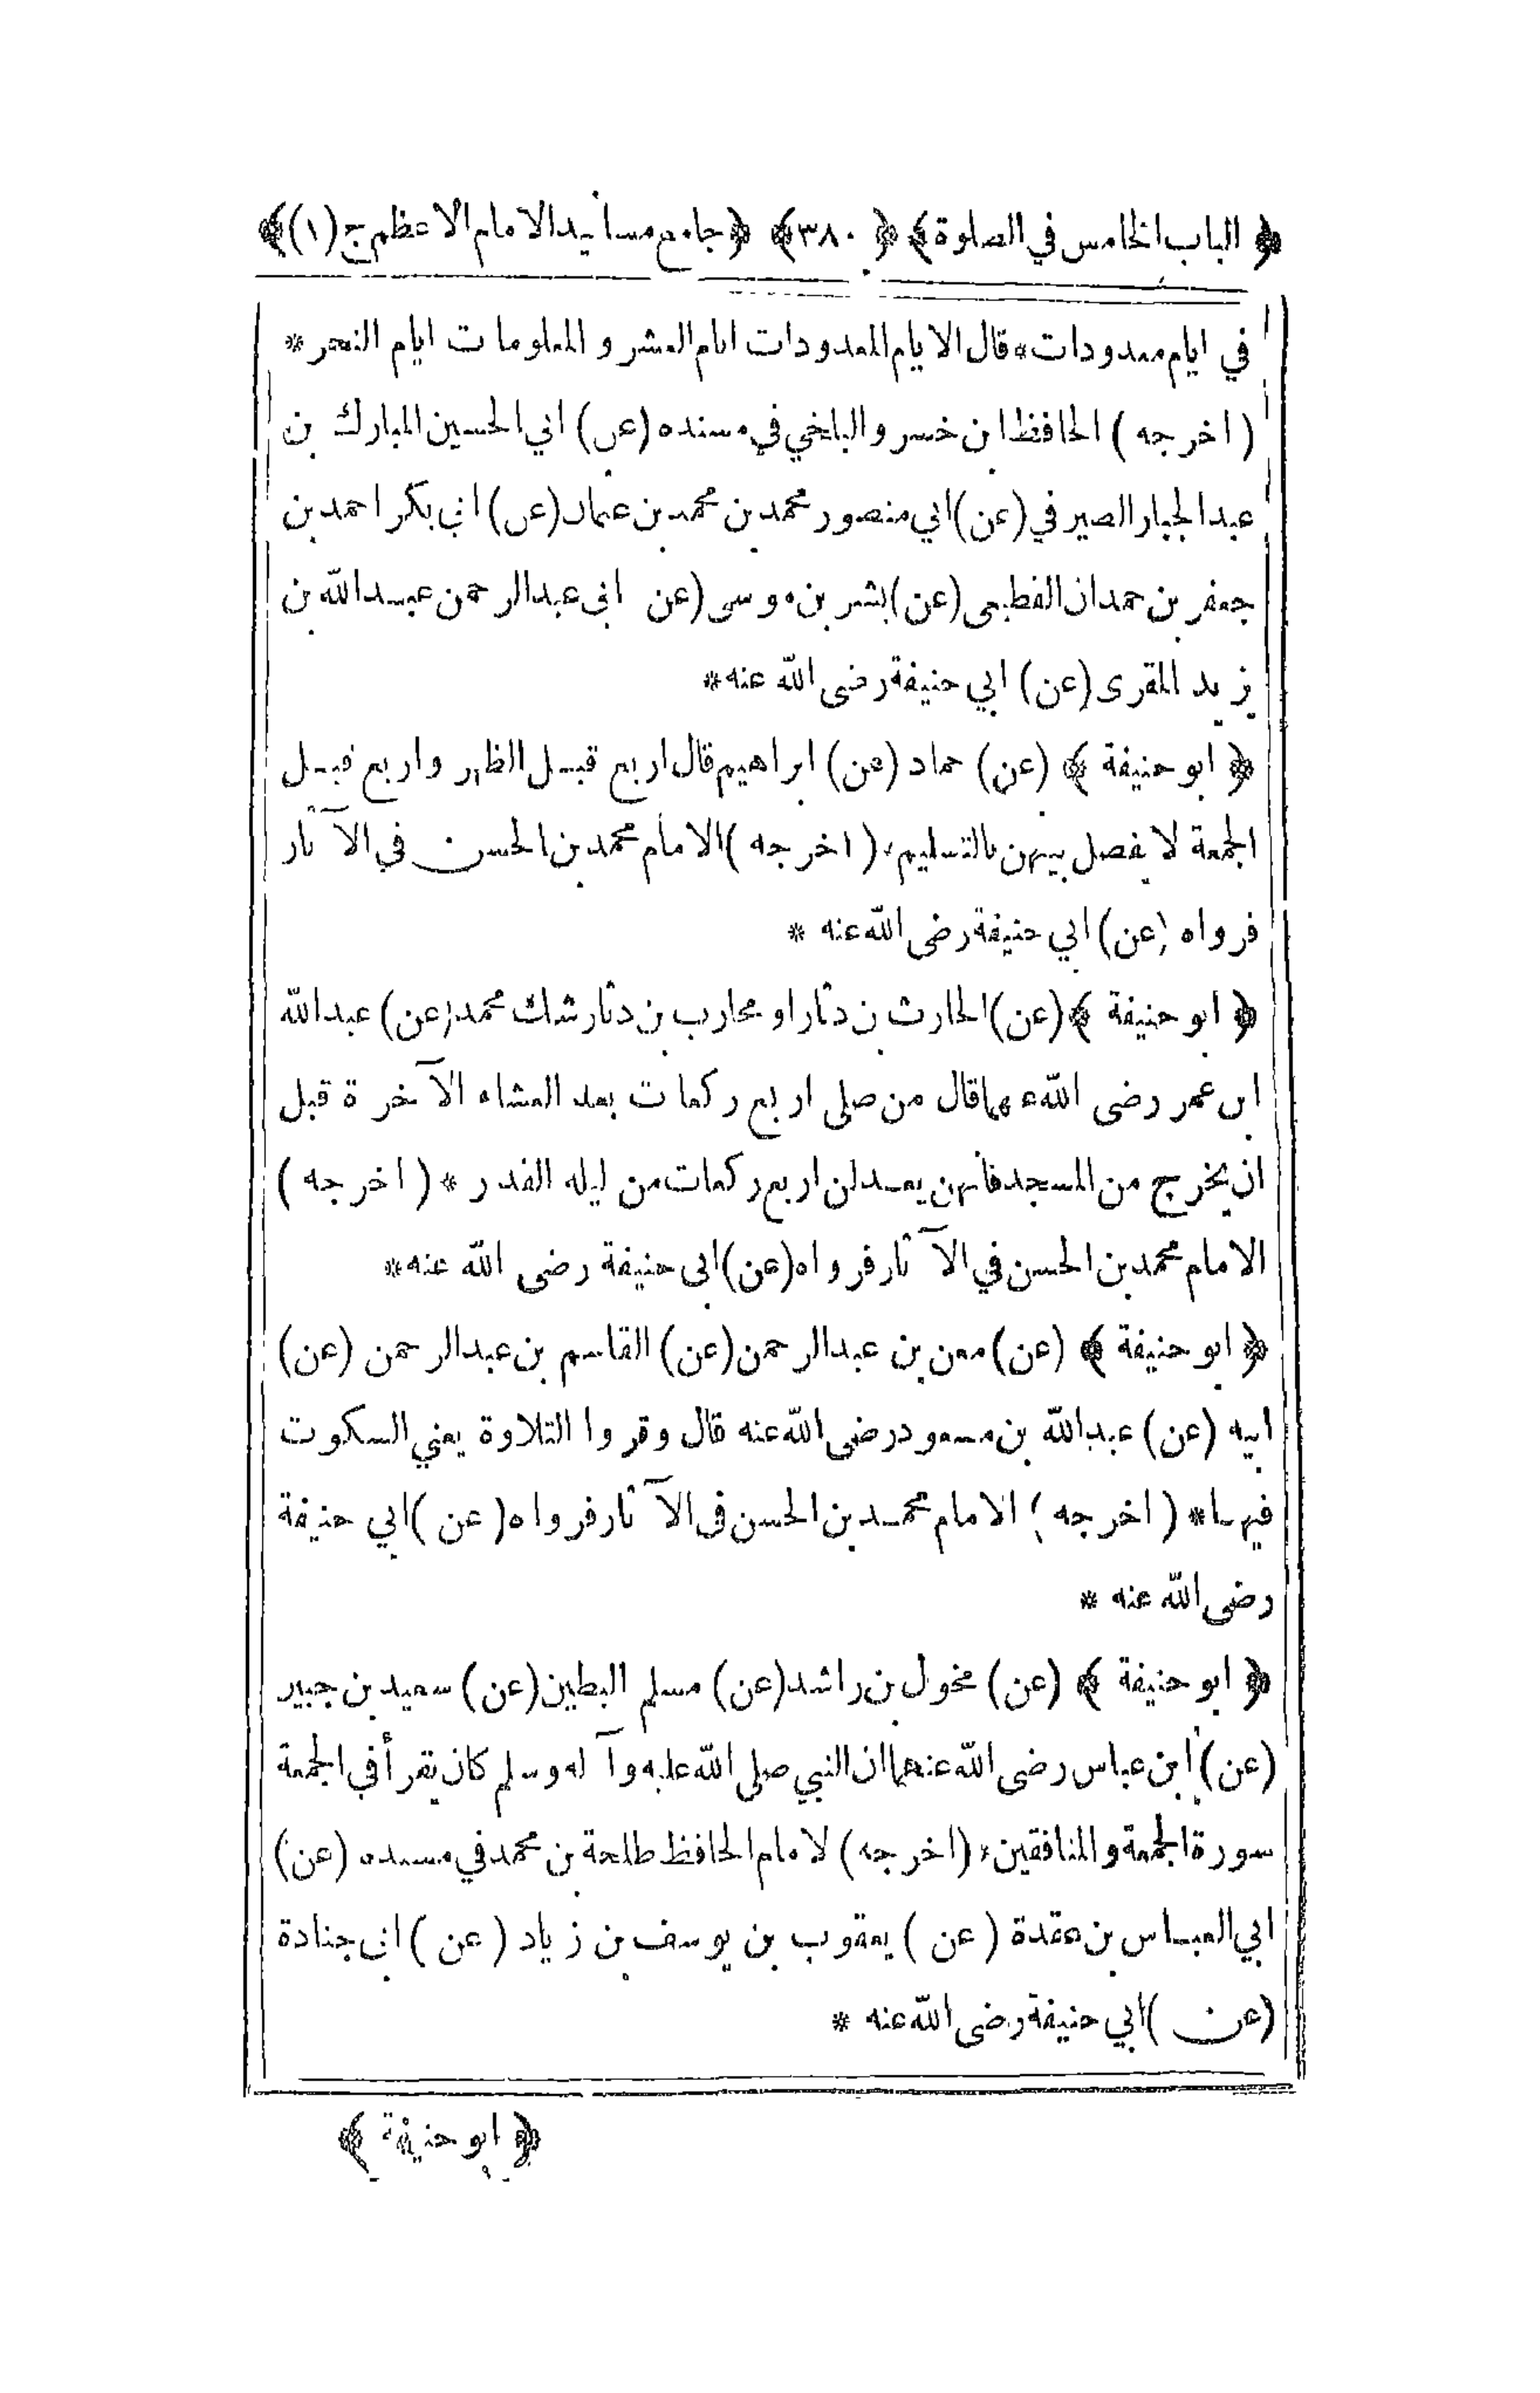 ﴿ الباب الخامس في الصلوة ﴾ ﴿ ٣٨٠ ﴾ ﴿ جامع مسانيد الامام الاعظم ج (١) ﴾
في ايام معدودات * قال الايام المعدودات ايام العشر و المعلومات ايام النحر *
( اخرجه ) الحافظ ابن خسرو البلخي في مسنده (عن) ابي الحسين المبارك بن
عبد الجبار الصيرفي (عن) ابي منصور محمد بن محمد بن عثمان (عن) ابي بكر احمد بن
جعفر بن حمدان القطيعي (عن) بشر بن موسى (عن ابي عبد الرحمن عبد الله بن
يزيد المقرى (عن) ابي حنيفة رضى الله عنه *
﴿ ابو حنيفة ﴾ (عن) حماد (عن) ابراهيم قال اربع قبل الظهر واربع قبل
الجمعة لا يفصل بينهن بالتسليم * ( اخرجه ) الامام محمد بن الحسن في الآثار
فرواه (عن) ابي حنيفة رضى الله عنه *
﴿ ابو حنيفة ﴾ (عن) الحارث بن دثار او محارب بن دثار شك محمد (عن) عبد الله
ابن عمر رضى الله عنهما قال من صلى اربع ركعات بعد العشاء الآخرة قبل
ان يخرج من المسجد فانهن يعدلن اربع ركعات من ليلة القدر * ( اخرجه )
الامام محمد بن الحسن في الآثار فرواه (عن) ابي حنيفة رضى الله عنه *
﴿ ابو حنيفة ﴾ (عن) معن بن عبد الرحمن (عن) القاسم بن عبد الرحمن (عن)
ابيه (عن) عبد الله بن مسعود رضى الله عنه قال وقروا التلاوة يعني السكوت
فيها * ( اخرجه ) الامام محمد بن الحسن في الآثار فرواه ( عن ) ابي حنيفة
رضى الله عنه *
﴿ ابو حنيفة ﴾ (عن) مخول بن راشد (عن) مسلم البطين (عن) سعيد بن جبير
(عن) ابن عباس رضى الله عنهما ان النبي صلى الله عليه وآله وسلم كان يقرأ في الجمعة
سورة الجمعة و المنافقين * (اخرجه) لامام الحافظ طلحة بن محمد في مسنده (عن)
ابي العباس بن عقدة ( عن ) يعقوب بن يوسف بن زياد ( عن ) ابي جنادة
(عن) ابي حنيفة رضى الله عنه *
﴿ ابو حنيفة ﴾